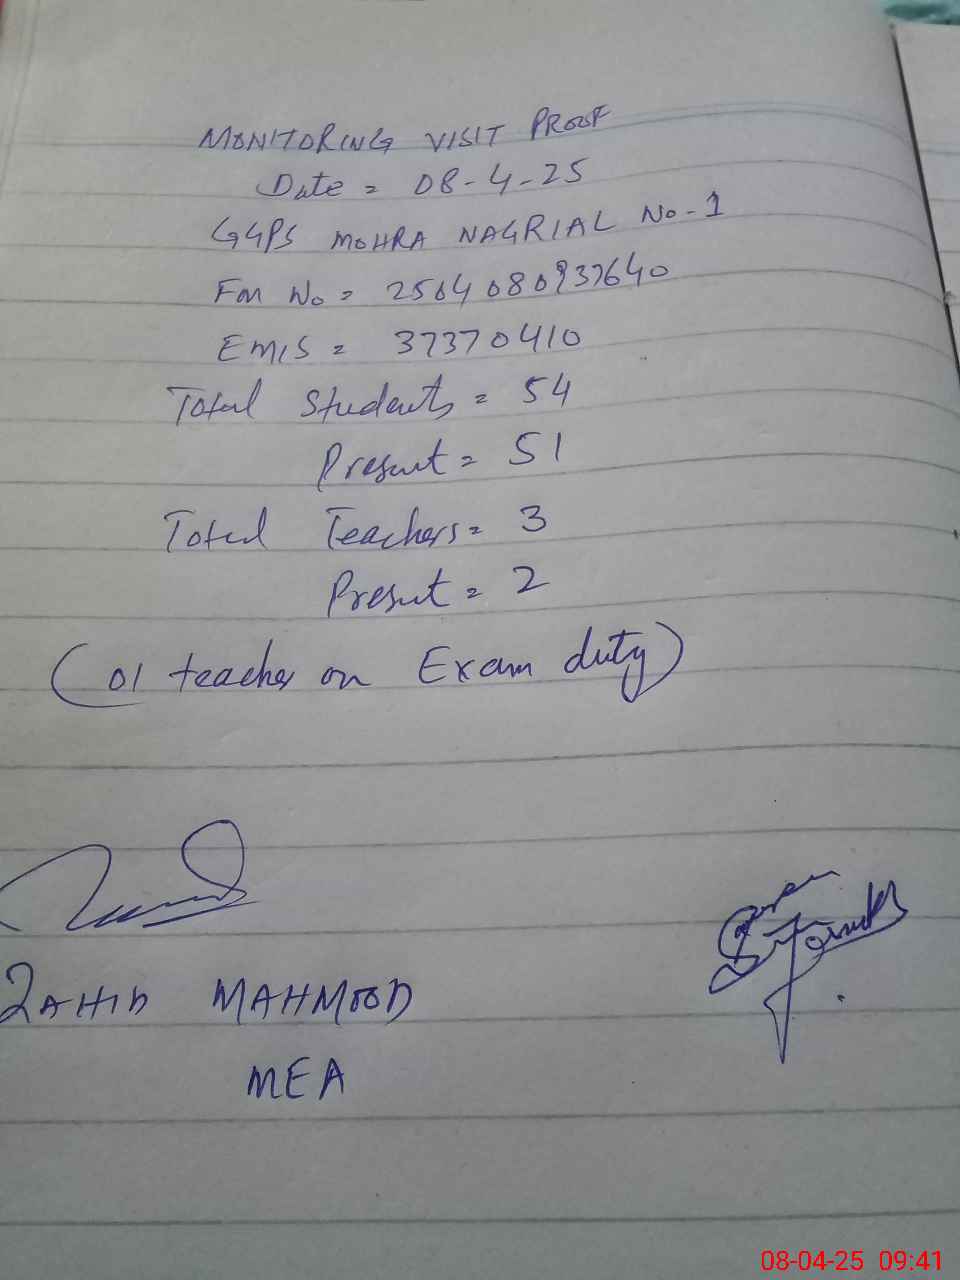 MONITORING VISIT PROOF
Date = 08-4-25
GGPS MOHRA NAGRIAL No-1
Fm No = 2504080937640
EMIS = 37370410
Total Students = 54
Present = 51
Total Teachers = 3
Present = 2
(01 teacher on Exam duty)
ZAHID MAHMOOD
MEA
08-04-25 09:41